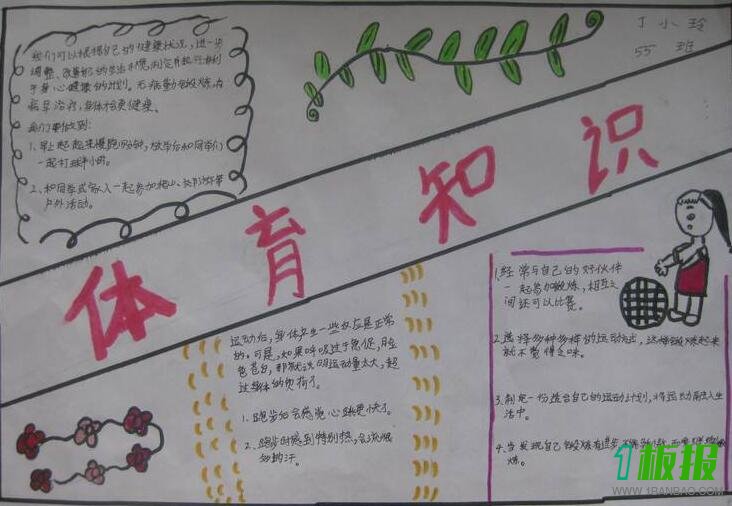 我们可以根据自己的健康状况，进一步
调整、改善自己的生活环境，制定并执行有利
于身心健康的计划。无病勤锻炼，有
病早治疗，身体会更健康。
我们要做到：
1、早上起起来慢跑10分钟，放学后和同学们
一起打球半小时。
2、和同学或家人一起参加爬山、
户外活动。
丁小玲
55 班
体育知识
运动后，身体产生一些反应是正常
的。可是，如果呼吸过于急促，脸
色苍白，那就说明运动量太大，超
过身体的负荷了。
1、跑步后会感觉心跳更快了。
2、跑步时感到特别热，会流
1、经常与自己的好伙伴
一起参加锻炼，相互之
间还可以比赛。
2、选择多种多样的运动方式，这样锻炼起来
就不觉得乏味。
3、制定一份适合自己的运动计划，将运动融入生
活中。
4、当发现自己锻炼有进步
炼。
1板报
WWW.1BANBAO.COM